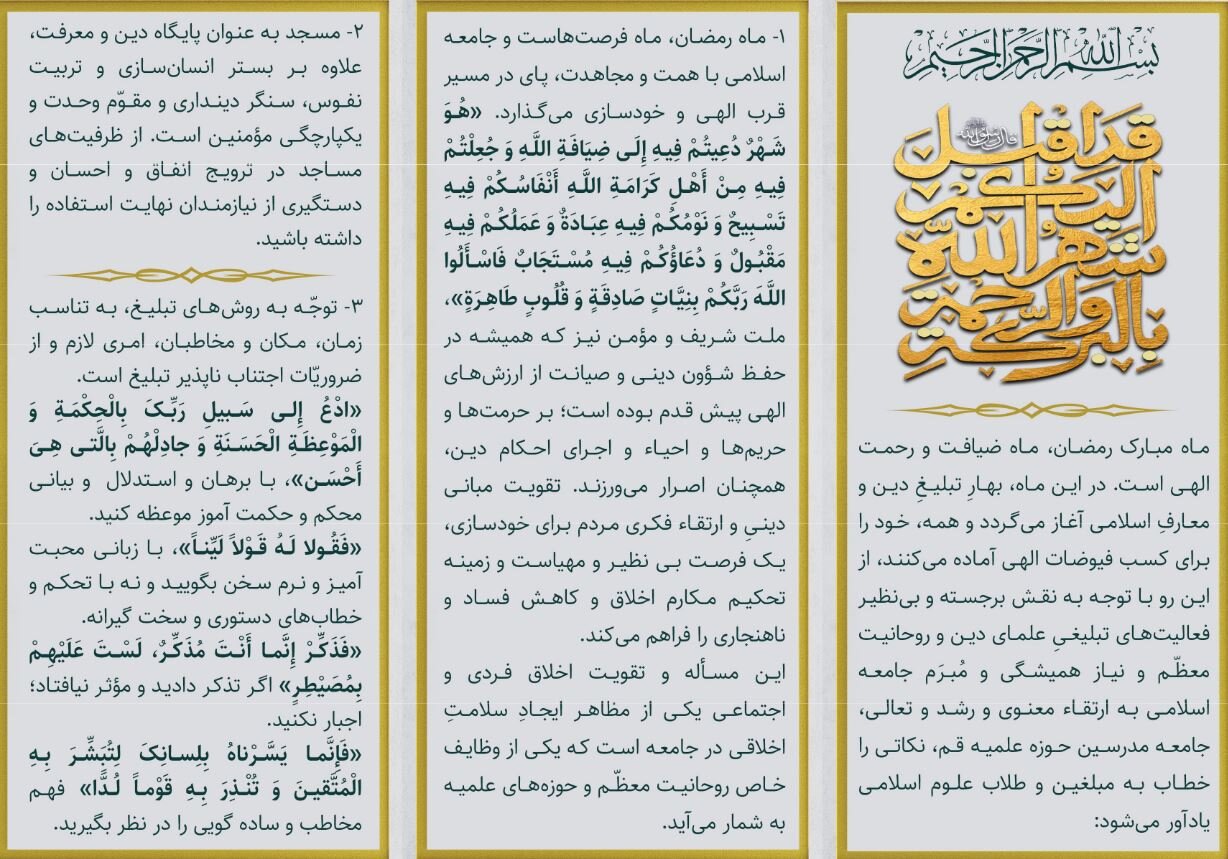 بسم الله الرحمن الرحیم
قال رسول الله
قد اقبل
الیکم
شهر الله
بالبرکة والرحمة
ماه مبارک رمضان، ماه ضیافت و رحمت
الهی است. در این ماه، بهارِ تبلیغِ دین و
معارفِ اسلامی آغاز می‌گردد و همه، خود را
برای کسب فیوضات الهی آماده می‌کنند، از
این رو با توجه به نقش برجسته و بی‌نظیر
فعالیت‌های تبلیغیِ علمای دین و روحانیت
معظّم و نیاز همیشگی و مُبرَم جامعه
اسلامی به ارتقاء معنوی و رشد و تعالی،
جامعه مدرسین حوزه علمیه قم، نکاتی را
خطاب به مبلغین و طلاب علوم اسلامی
یادآور می‌شود:
۱- ماه رمضان، ماه فرصت‌هاست و جامعه
اسلامی با همت و مجاهدت، پای در مسیر
قرب الهی و خودسازی می‌گذارد. «هُوَ
شَهْرٌ دُعِیتُمْ فِیهِ إِلَی ضِیَافَةِ اللَّهِ وَ جُعِلْتُمْ
فِیهِ مِنْ أَهْلِ کَرَامَةِ اللَّهِ أَنْفَاسُکُمْ فِیهِ
تَسْبِیحٌ وَ نَوْمُکُمْ فِیهِ عِبَادَةٌ وَ عَمَلُکُمْ فِیهِ
مَقْبُولٌ وَ دُعَاؤُکُمْ فِیهِ مُسْتَجَابٌ فَاسْأَلُوا
اللَّهَ رَبَّکُمْ بِنِیَّاتٍ صَادِقَةٍ وَ قُلُوبٍ طَاهِرَةٍ»،
ملت شریف و مؤمن نیز که همیشه در
حفظ شؤون دینی و صیانت از ارزش‌های
الهی پیش قدم بوده است؛ بر حرمت‌ها و
حریم‌ها و احیاء و اجرای احکام دین،
همچنان اصرار می‌ورزند. تقویت مبانی
دینیِ و ارتقاء فکری مردم برای خودسازی،
یک فرصت بی نظیر و مهیاست و زمینه
تحکیم مکارم اخلاق و کاهش فساد و
ناهنجاری را فراهم می‌کند.
این مسأله و تقویت اخلاق فردی و
اجتماعی یکی از مظاهر ایجادِ سلامتِ
اخلاقی در جامعه است که یکی از وظایف
خاص روحانیت معظّم و حوزه‌های علمیه
به شمار می‌آید.
۲- مسجد به عنوان پایگاه دین و معرفت،
علاوه بر بستر انسان‌سازی و تربیت
نفوس، سنگر دینداری و مقوّم وحدت و
یکپارچگی مؤمنین است. از ظرفیت‌های
مساجد در ترویج انفاق و احسان و
دستگیری از نیازمندان نهایت استفاده را
داشته باشید.
۳- توجّه به روش‌های تبلیغ، به تناسب
زمان، مکان و مخاطبان، امری لازم و از
ضروریّات اجتناب ناپذیر تبلیغ است.
«ادْعُ إِلی سَبیلِ رَبِّکَ بِالْحِکْمَةِ وَ
الْمَوْعِظَةِ الْحَسَنَةِ وَ جادِلْهُمْ بِالَّتی هِیَ
أَحْسَن»، با برهان و استدلال و بیانی
محکم و حکمت آموز موعظه کنید.
«فَقُولا لَهُ قَوْلاً لَیِّناً»، با زبانی محبت
آمیز و نرم سخن بگویید و نه با تحکم و
خطاب‌های دستوری و سخت گیرانه.
«فَذَکِّرْ إِنَّما أَنْتَ مُذَکِّرٌ، لَسْتَ عَلَیْهِمْ
بِمُصَیْطِرٍ» اگر تذکر دادید و مؤثر نیافتاد؛
اجبار نکنید.
«فَإِنَّما یَسَّرْناهُ بِلِسانِکَ لِتُبَشِّرَ بِهِ
الْمُتَّقینَ وَ تُنْذِرَ بِهِ قَوْماً لُدًّا» فهم
مخاطب و ساده گویی را در نظر بگیرید.